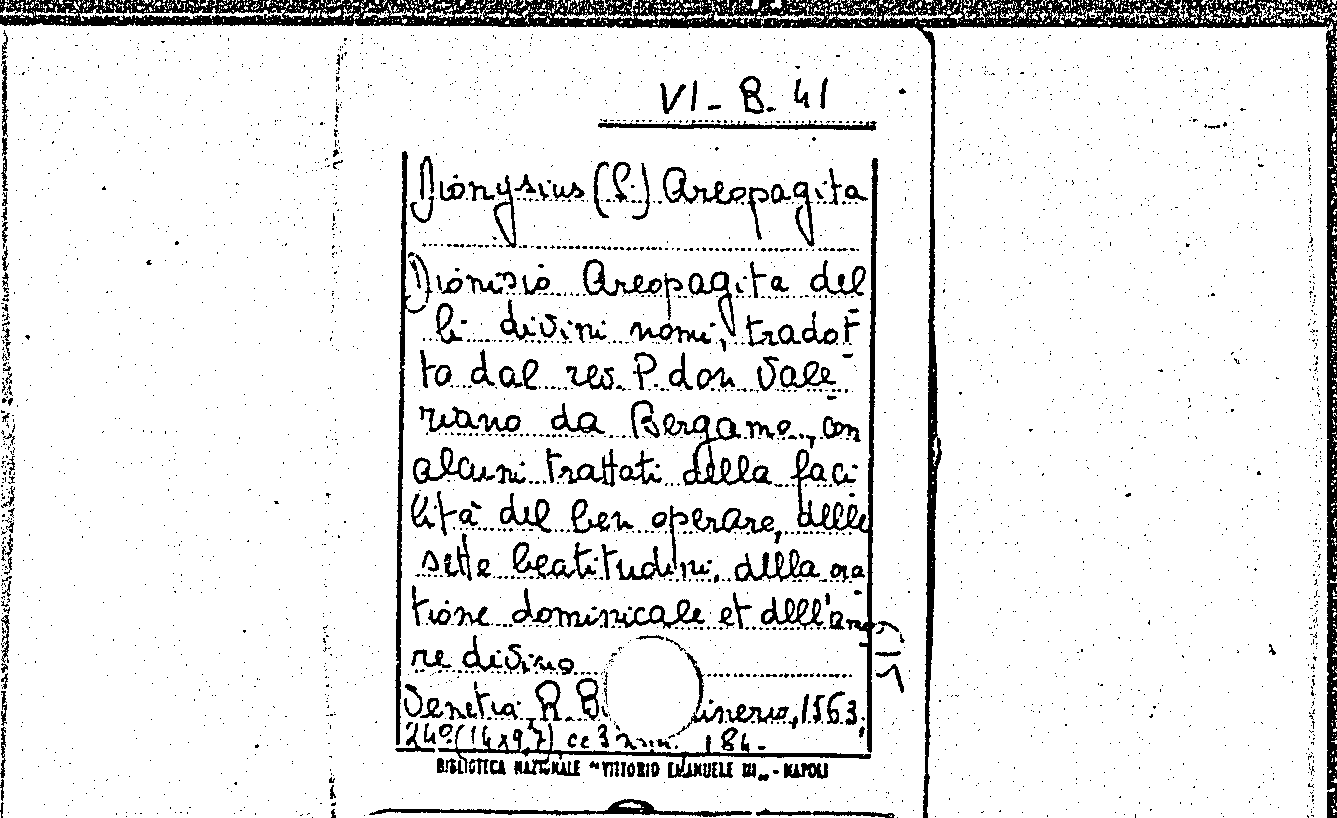 VI-B-41
Dionysius (S.) Areopagita
Dionisio Areopagita del
li divini nomi, tradot
to dal rev. P. don Vale
riano da Bergamo, con
alcuni trattati della faci
lità del ben operare, delle
sette beatitudini, della ora
tione dominicale et dell'amo
re divino
Venetia, R. B inerio, 1563,
24º (14x9,7) cc 3 184.
BIBLIOTECA NAZIONALE "VITTORIO EMANUELE III" - NAPOLI